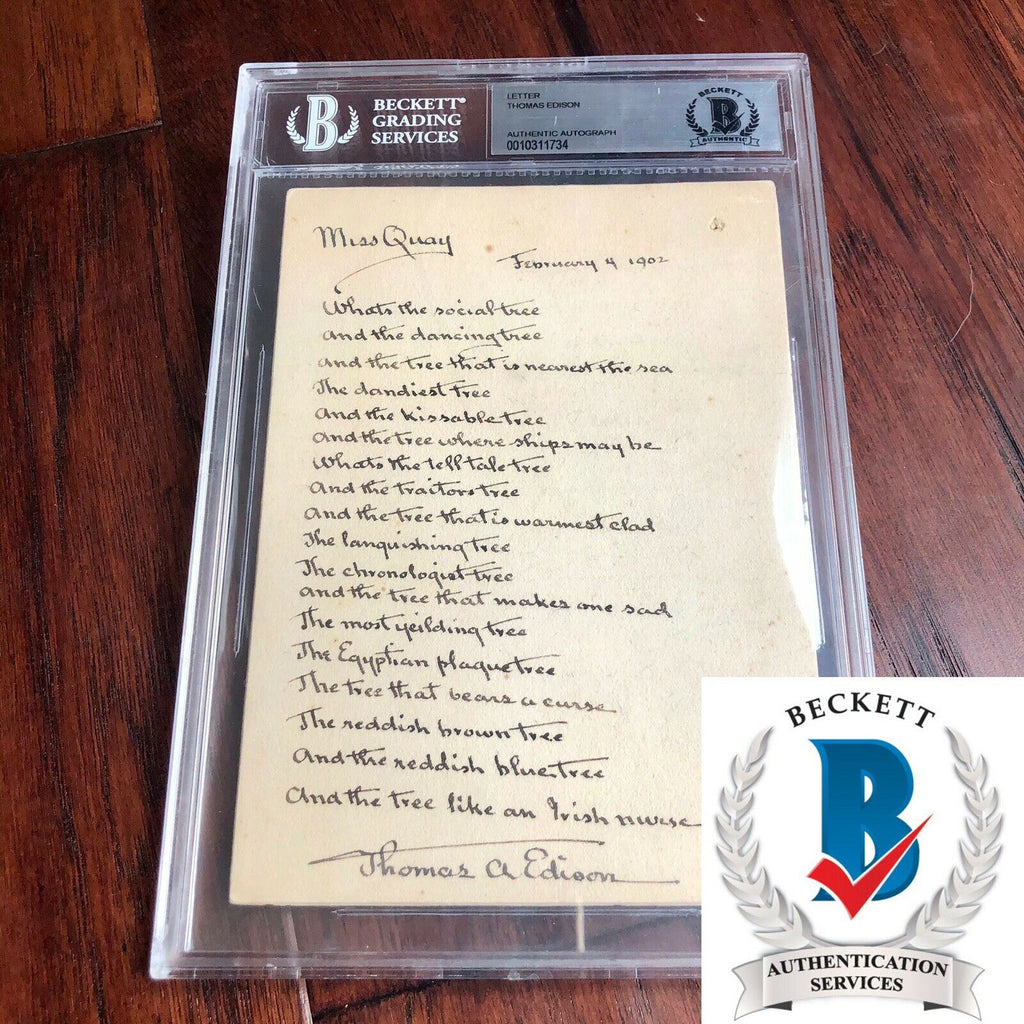 BECKETT®
GRADING
SERVICES
LETTER
THOMAS EDISON
AUTHENTIC AUTOGRAPH
0010311734
BECKETT
AUTHENTIC
Miss Quay
February 4 1902
Whats the social tree
and the dancing tree
and the tree that is nearest the sea
The dandiest tree
And the kissable tree
And the tree where ships may be
Whats the tell tale tree
And the traitors tree
And the tree that is warmest clad
The languishing tree
The chronologist tree
and the tree that makes one sad
The most yeilding tree
The Egyptian plague tree
The tree that bears a curse
The reddish brown tree
And the reddish blue tree
And the tree like an Irish nurse
Thomas A Edison
BECKETT
B
AUTHENTICATION
SERVICES